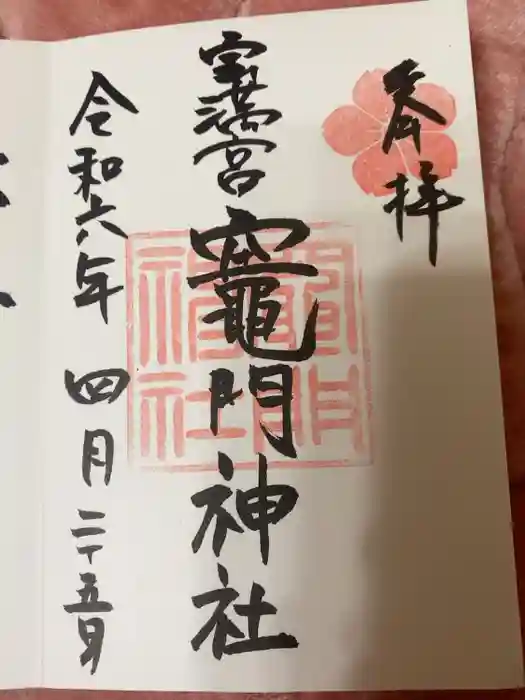 奉拝
宝満宮
竈門神社
令和六年四月二十五日
竈門神社